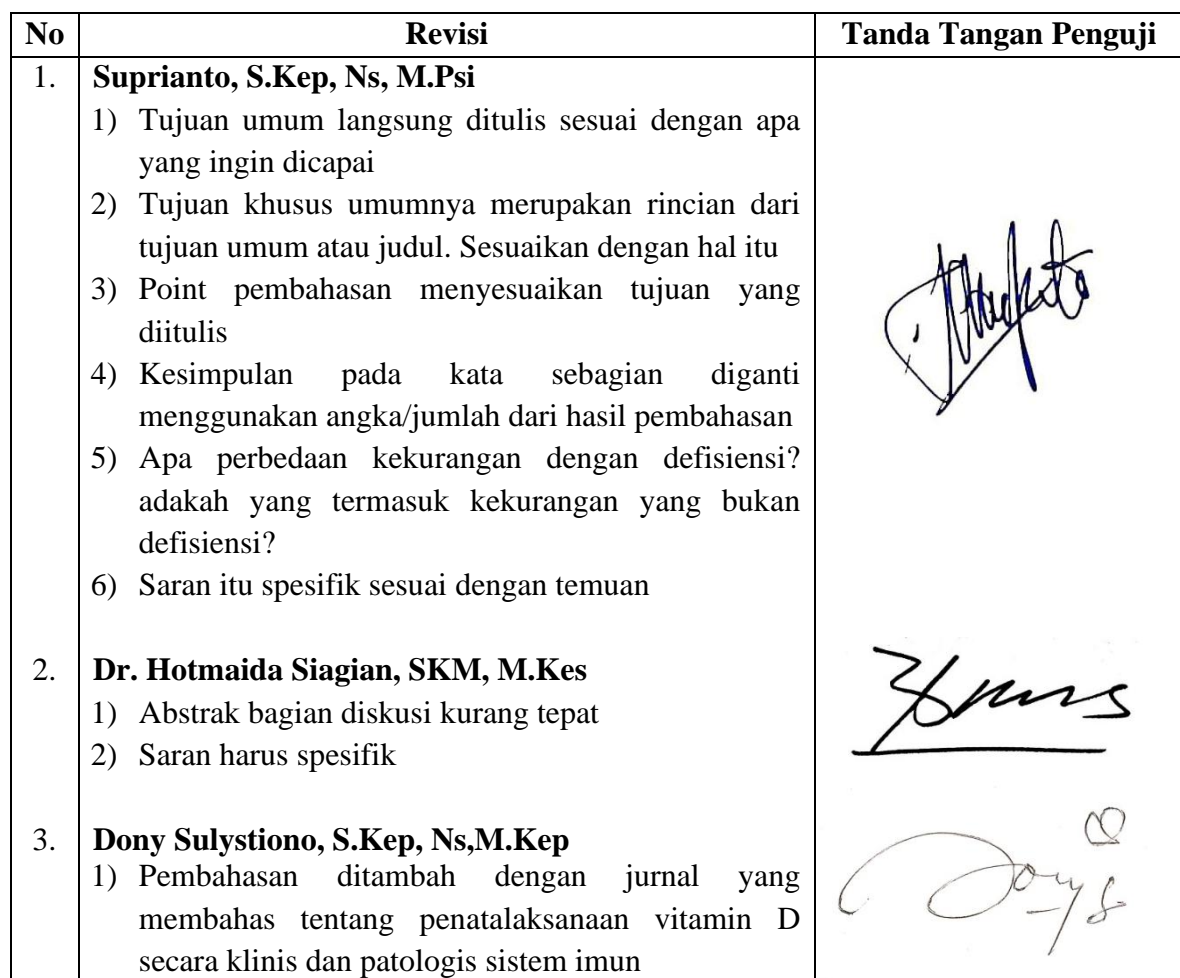 No Revisi Tanda Tangan Penguji
1. Suprianto, S.Kep, Ns, M.Psi
1) Tujuan umum langsung ditulis sesuai dengan apa
yang ingin dicapai
2) Tujuan khusus umumnya merupakan rincian dari
tujuan umum atau judul. Sesuaikan dengan hal itu
3) Point pembahasan menyesuaikan tujuan yang
diitulis
4) Kesimpulan pada kata sebagian diganti
menggunakan angka/jumlah dari hasil pembahasan
5) Apa perbedaan kekurangan dengan defisiensi?
adakah yang termasuk kekurangan yang bukan
defisiensi?
6) Saran itu spesifik sesuai dengan temuan
2. Dr. Hotmaida Siagian, SKM, M.Kes
1) Abstrak bagian diskusi kurang tepat
2) Saran harus spesifik
3. Dony Sulystiono, S.Kep, Ns,M.Kep
1) Pembahasan ditambah dengan jurnal yang
membahas tentang penatalaksanaan vitamin D
secara klinis dan patologis sistem imun